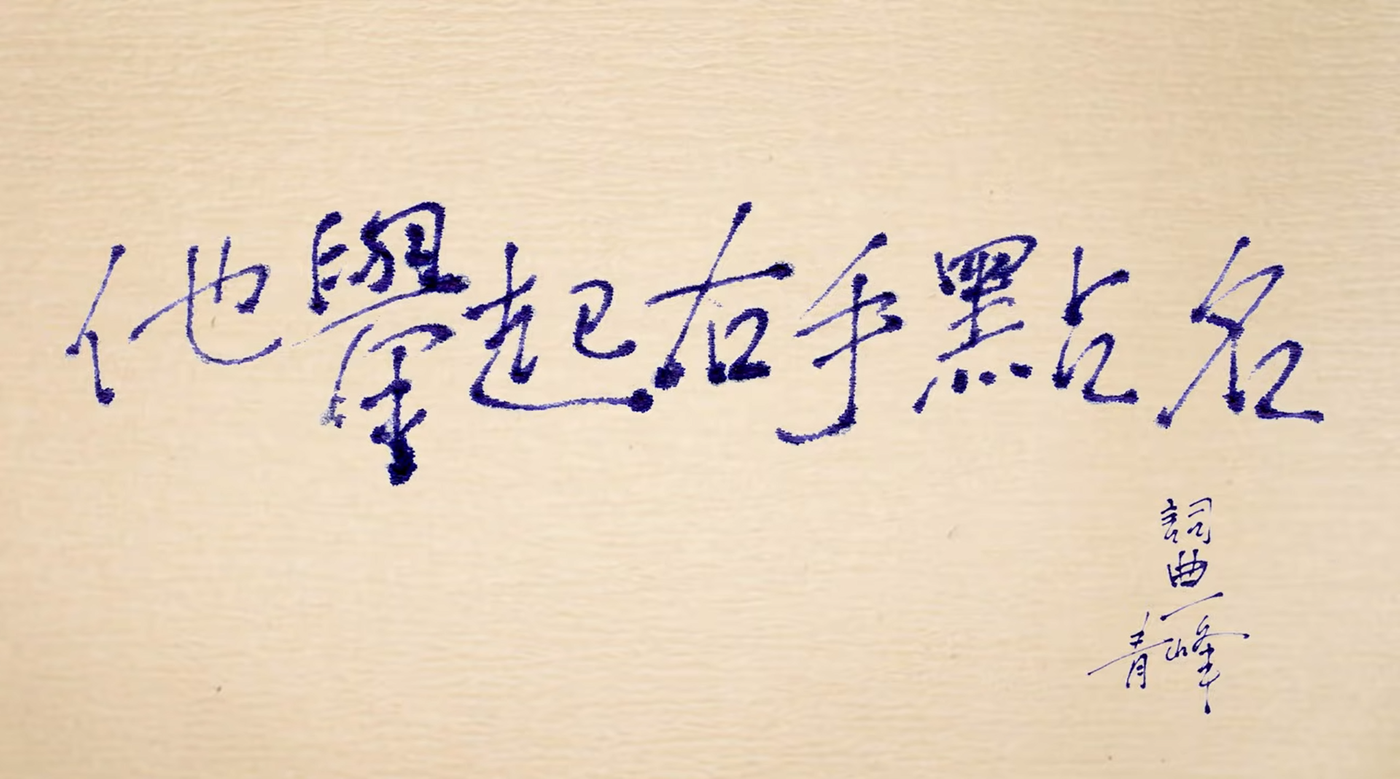 他舉起右手點名
詞曲
青峰